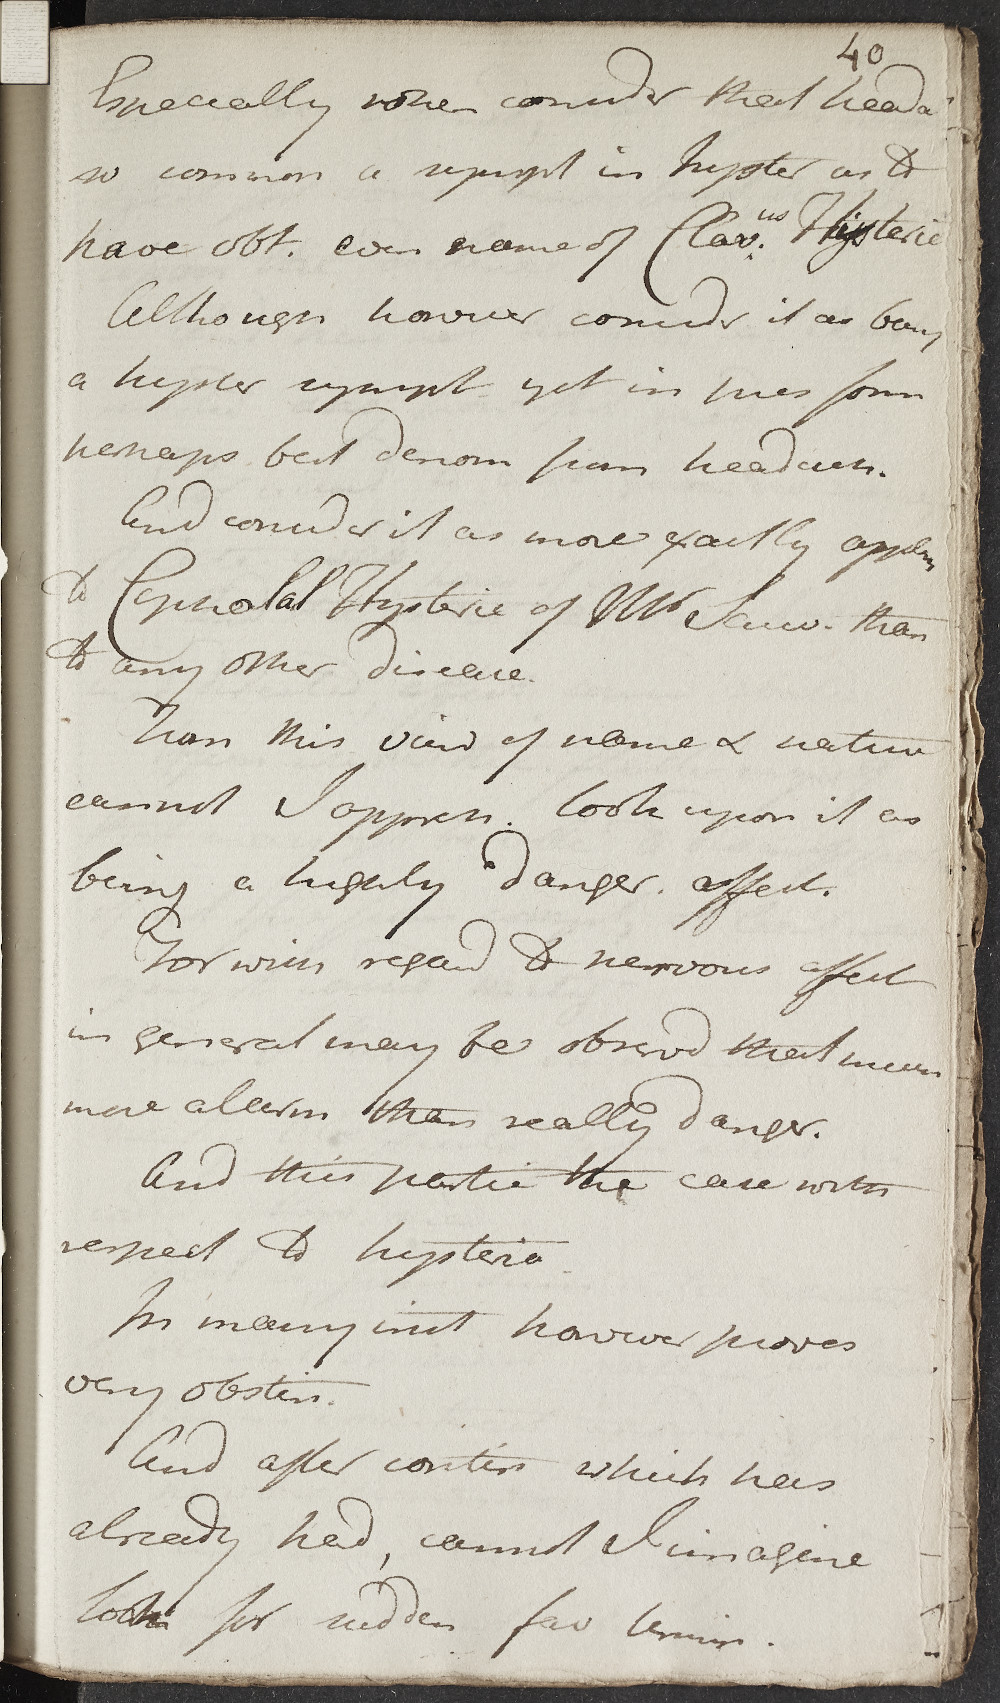 40
Especially when consider that heada
so common a sympt in hyster as to
have obt. even name of Clav.us Hysteric
Although however consider it as being
a hyster sympt yet in pres form
perhaps best denom from headach.
And consider it as more exactly applin
to Cephalal Hysteric of Mr Sauv. than
to any other disease.
From this view of name & nature
cannot I appreh. look upon it as
being a highly danger. affect.
For with regard to nervous affect
in general may be observd that much
more alarm than really danger.
And this partic the case with
respect to hysteria
In many inst however proves
very obstin.
And after contin which has
already had, cannot I imagine
look for sudden fav termin.